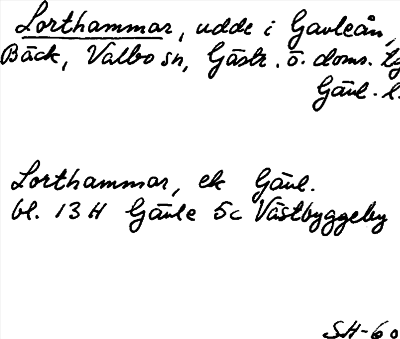 Lorthammar, udde i Gavleån,
Bäck, Valbo sn, Gästr. ö. doms. tg
Gävl. l.
Lorthammar, ek Gävl.
bl. 13 H Gävle 5c Västbyggeby
SH-60